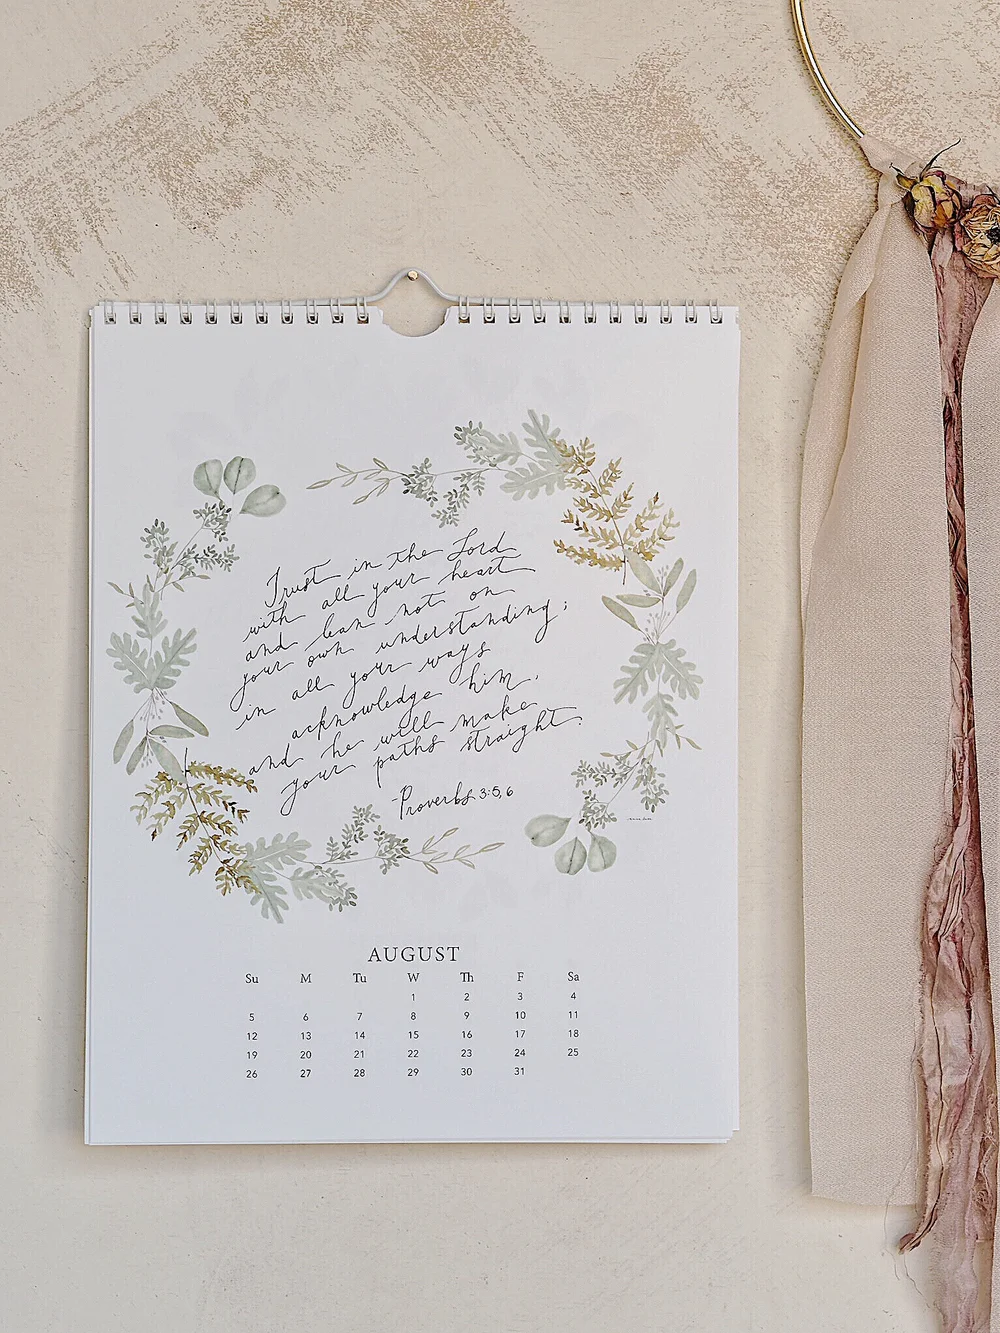 Trust in the Lord
with all your heart
and lean not on
your own understanding;
in all your ways
acknowledge him,
and he will make
your paths straight.
-Proverbs 3:5,6
AUGUST
Su M Tu W Th F Sa
1 2 3 4
5 6 7 8 9 10 11
12 13 14 15 16 17 18
19 20 21 22 23 24 25
26 27 28 29 30 31